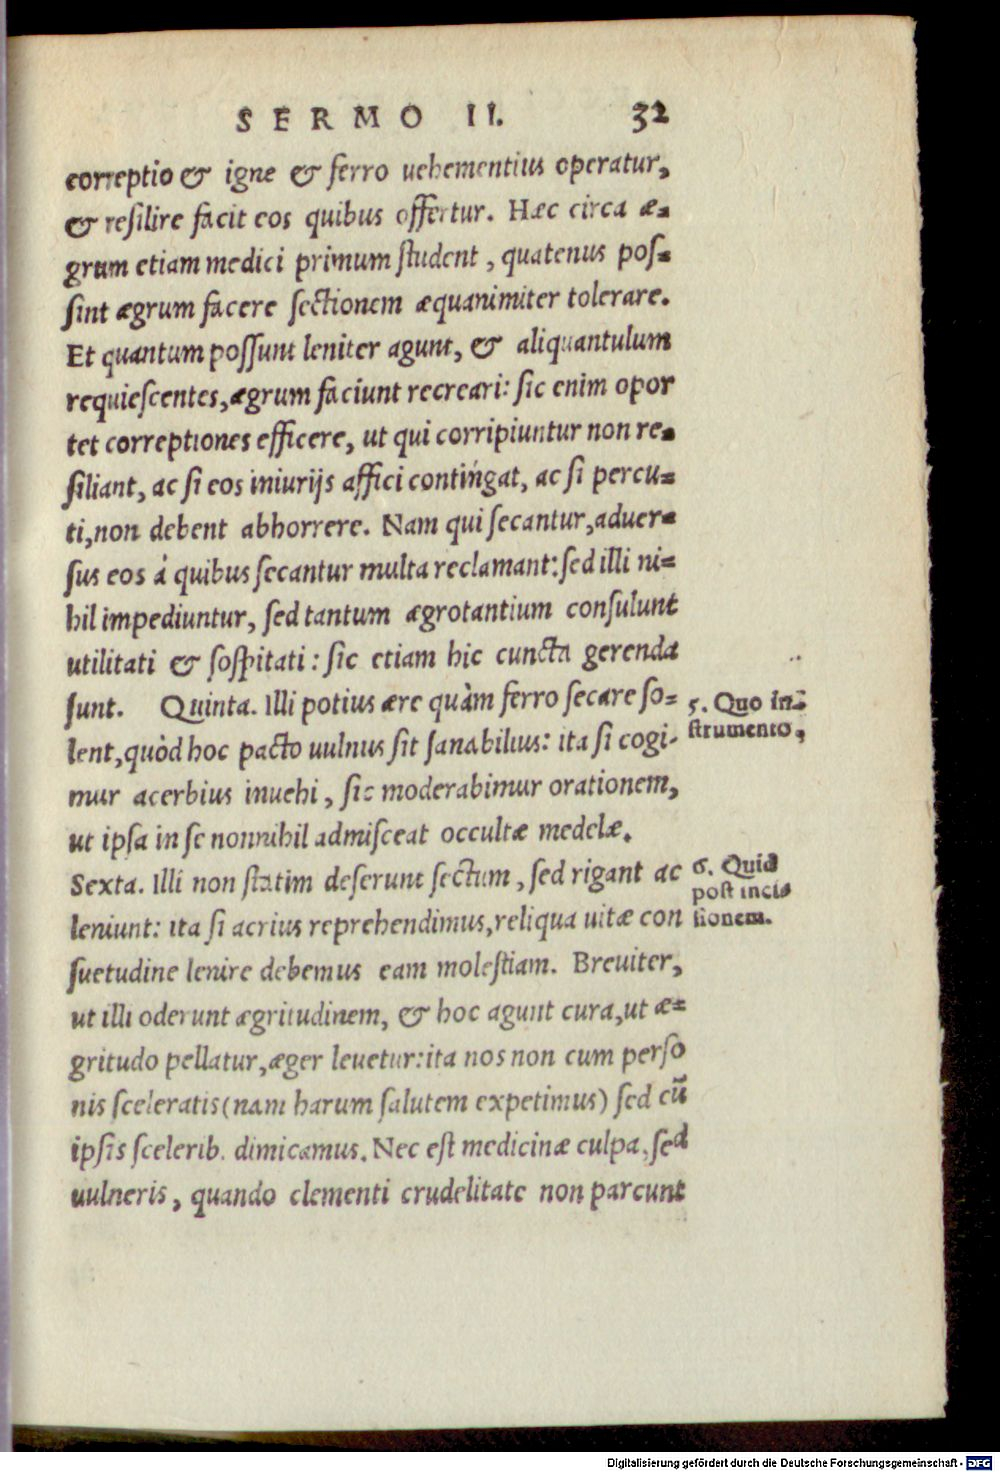 SERMO II. 32
correptio & igne & ferro uehementius operatur,
& resilire facit eos quibus offertur. Hæc circa æ-
grum etiam medici primum student, quatenus pos-
sint ægrum facere sectionem æquanimiter tolerare.
Et quantum possunt leniter agunt, & aliquantulum
requiescentes, ægrum faciunt recreari: sic enim opor
tet correptiones efficere, ut qui corripiuntur non re-
siliant, ac si eos iniurijs affici contingat, ac si percu-
ti, non debent abhorrere. Nam qui secantur, aduer-
sus eos à quibus secantur multa reclamant: sed illi ni-
hil impediuntur, sed tantum ægrotantium consulunt
utilitati & sospitati: sic etiam hic cuncta gerenda
sunt. Quinta. Illi potius ære quàm ferro secare so-
lent, quòd hoc pacto uulnus sit sanabilius: ita si cogi-
mur acerbius inuehi, sic moderabimur orationem,
ut ipsa in se nonnihil admisceat occultæ medelæ.
Sexta. Illi non statim deserunt sectum, sed rigant ac
leniunt: ita si acrius reprehendimus, reliqua uitæ con
suetudine lenire debemus eam molestiam. Breuiter,
ut illi oderunt ægritudinem, & hoc agunt cura, ut æ-
gritudo pellatur, æger leuetur: ita nos non cum perso
nis sceleratis (nam harum salutem expetimus) sed cū
ipsis scelerib. dimicamus. Nec est medicinæ culpa, sed
uulneris, quando clementi crudelitate non parcunt
5. Quo in-
strumento,
6. Quid
post inci-
sionem.
Digitalisierung gefördert durch die Deutsche Forschungsgemeinschaft - DFG